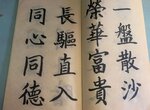 一盤散沙
榮華富貴
長驅直入
同心同德